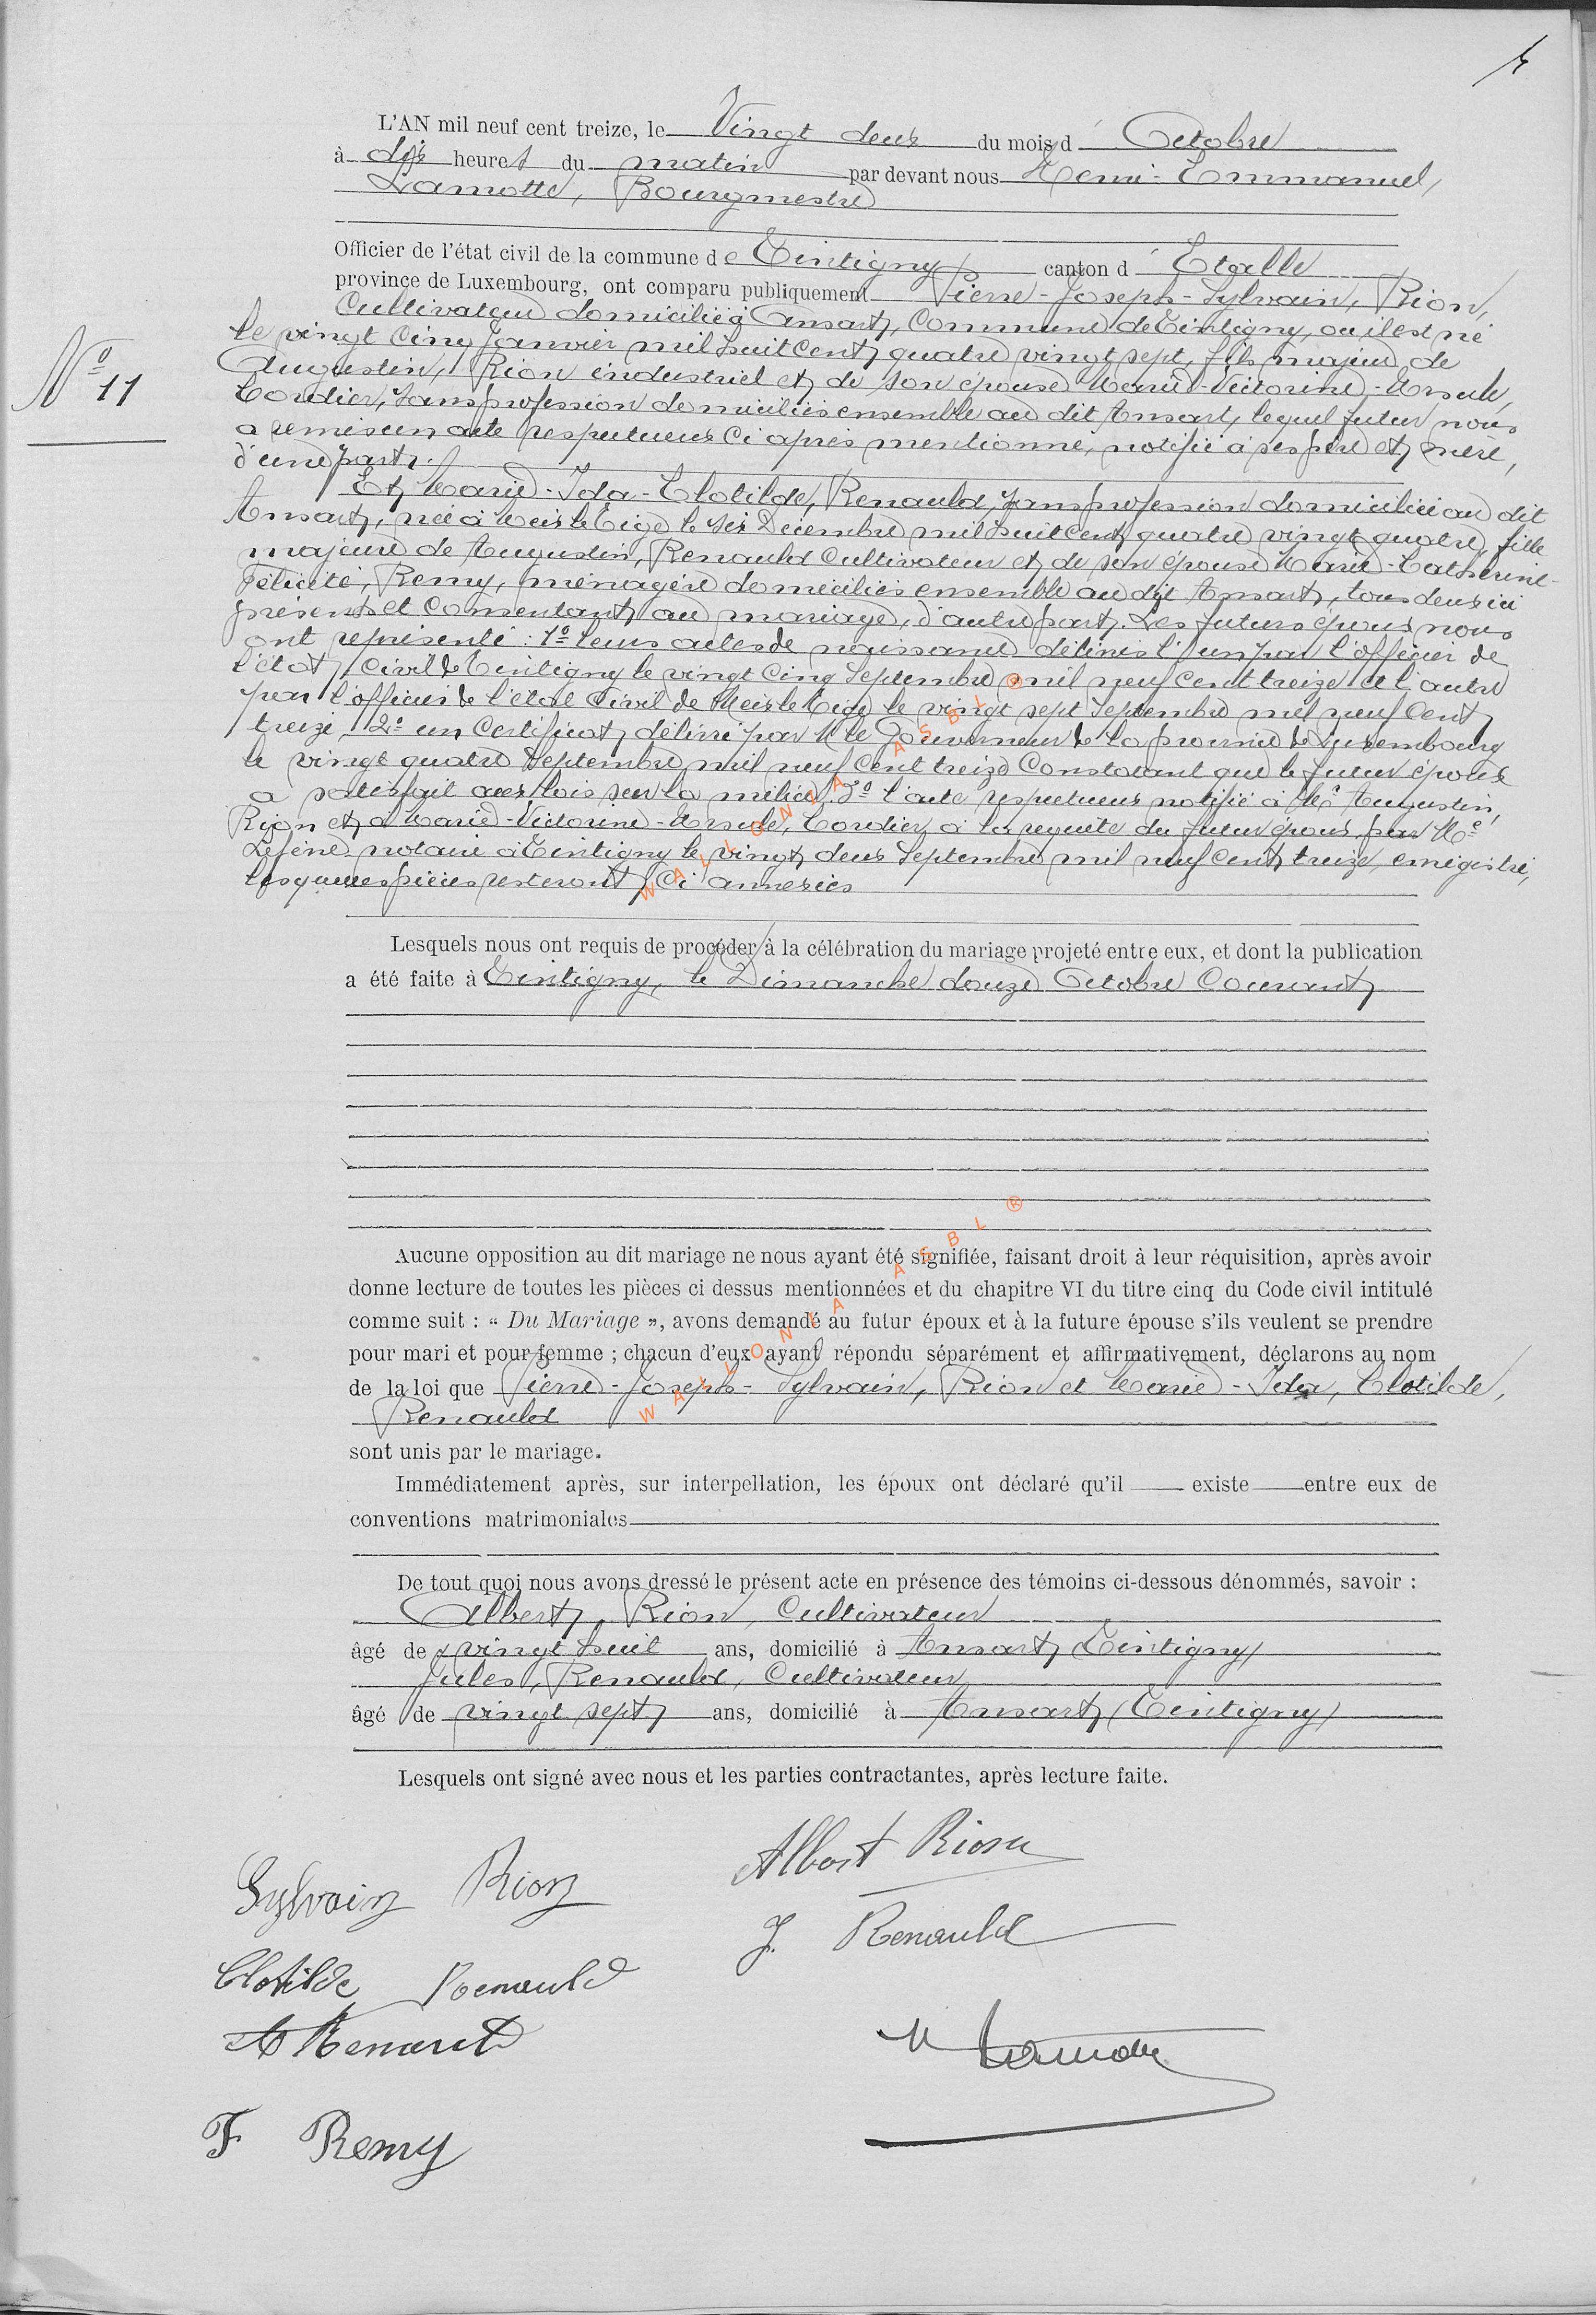 L'AN mil neuf cent treize, le Vingt deux du mois d Octobre
à dix heures du matin par devant nous Remi-Emmanuel,
Lamotte, Bourgmestre
Officier de l'état civil de la commune de Tintigny canton d' Etalle
province de Luxembourg, ont comparu publiquement Pierre-Joseph-Sylvain, Rion,
Cultivateur domicilié à Ansart, Commune de Tintigny, ou il est né
le vingt cinq Janvier mil huit cent quatre vingt sept, fils majeur de
N° 11
Augustin, Rion industriel et de son épouse Marie-Victorine-Ursule,
Cordier, sans profession domiciliés ensemble au dit Ansart, lequel futur nous
a remis un acte respectueux ci après mentionné, notifié à ses père et mère,
d'une part.
Et Marie-Ida-Clotilde, Renauld, sans profession domiciliée au dit
Ansart, née à Meix le Tige le six Décembre mil huit cent quatre vingt quatre, fille
majeure de Augustin, Renauld Cultivateur et de son épouse Marie-Catherine-
Félicité, Remy, ménagère domiciliés ensemble au dit Ansart, tous deux ici
présents et Consentant au mariage, d'autre part. Les futurs époux nous
ont représenté : 1° leurs actes de naissance délivrés l'un par l'officier de
l'état civil de Tintigny le vingt cinq Septembre mil neuf cent treize et l'autre
par l'officier de l'état Civil de Meix le Tige le vingt sept Septembre mil neuf Cent
treize, 2° un Certificat délivré par M le Gouverneur de la province de Luxembourg
le vingt quatre Septembre mil neuf Cent treize Constatant que le futur époux
a satisfait aux lois sur la milice. 3° l'acte respectueux notifié à Augustin,
Rion et à Marie-Victorine-Ursule, Cordier à la requête du futur époux par Me
notaire à Tintigny le vingt deux Septembre mil neuf cent treize, enregistré,
lesquelles pièces resteront Ci annexées
Lesquels nous ont requis de procéder à la célébration du mariage projeté entre eux, et dont la publication
a été faite à Tintigny, le Dimanche douze Octobre Courant
Aucune opposition au dit mariage ne nous ayant été signifiée, faisant droit à leur réquisition, après avoir
donne lecture de toutes les pièces ci dessus mentionnées et du chapitre VI du titre cinq du Code civil intitulé
comme suit : « Du Mariage », avons demandé au futur époux et à la future épouse s'ils veulent se prendre
pour mari et pour femme ; chacun d'eux ayant répondu séparément et affirmativement, déclarons au nom
de la loi que Pierre-Joseph-Sylvain, Rion et Marie-Ida, Clotilde,
Renauld
sont unis par le mariage.
Immédiatement après, sur interpellation, les époux ont déclaré qu'il existe entre eux de
conventions matrimoniales
De tout quoi nous avons dressé le présent acte en présence des témoins ci-dessous dénommés, savoir :
Albert, Rion, Cultivateur
âgé de vingt huit ans, domicilié à Ansart (Tintigny)
Jules, Renauld, Cultivateur
âgé de vingt sept ans, domicilié à Ansart (Tintigny)
Lesquels ont signé avec nous et les parties contractantes, après lecture faite.
Sylvain Rion
Albert Rion
J. Renauld
Clotilde Renauld
A Renauld
Lamotte
F Remy
WALLONIA ASBL ®
WALLONIA ASBL ®